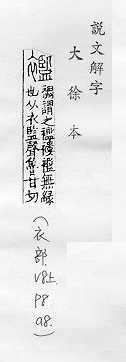 說文解字
大徐本
襤 裯謂之襤褸襤無緣
也从衣監聲魯甘切
(衣部.V8上.P8.a8.)